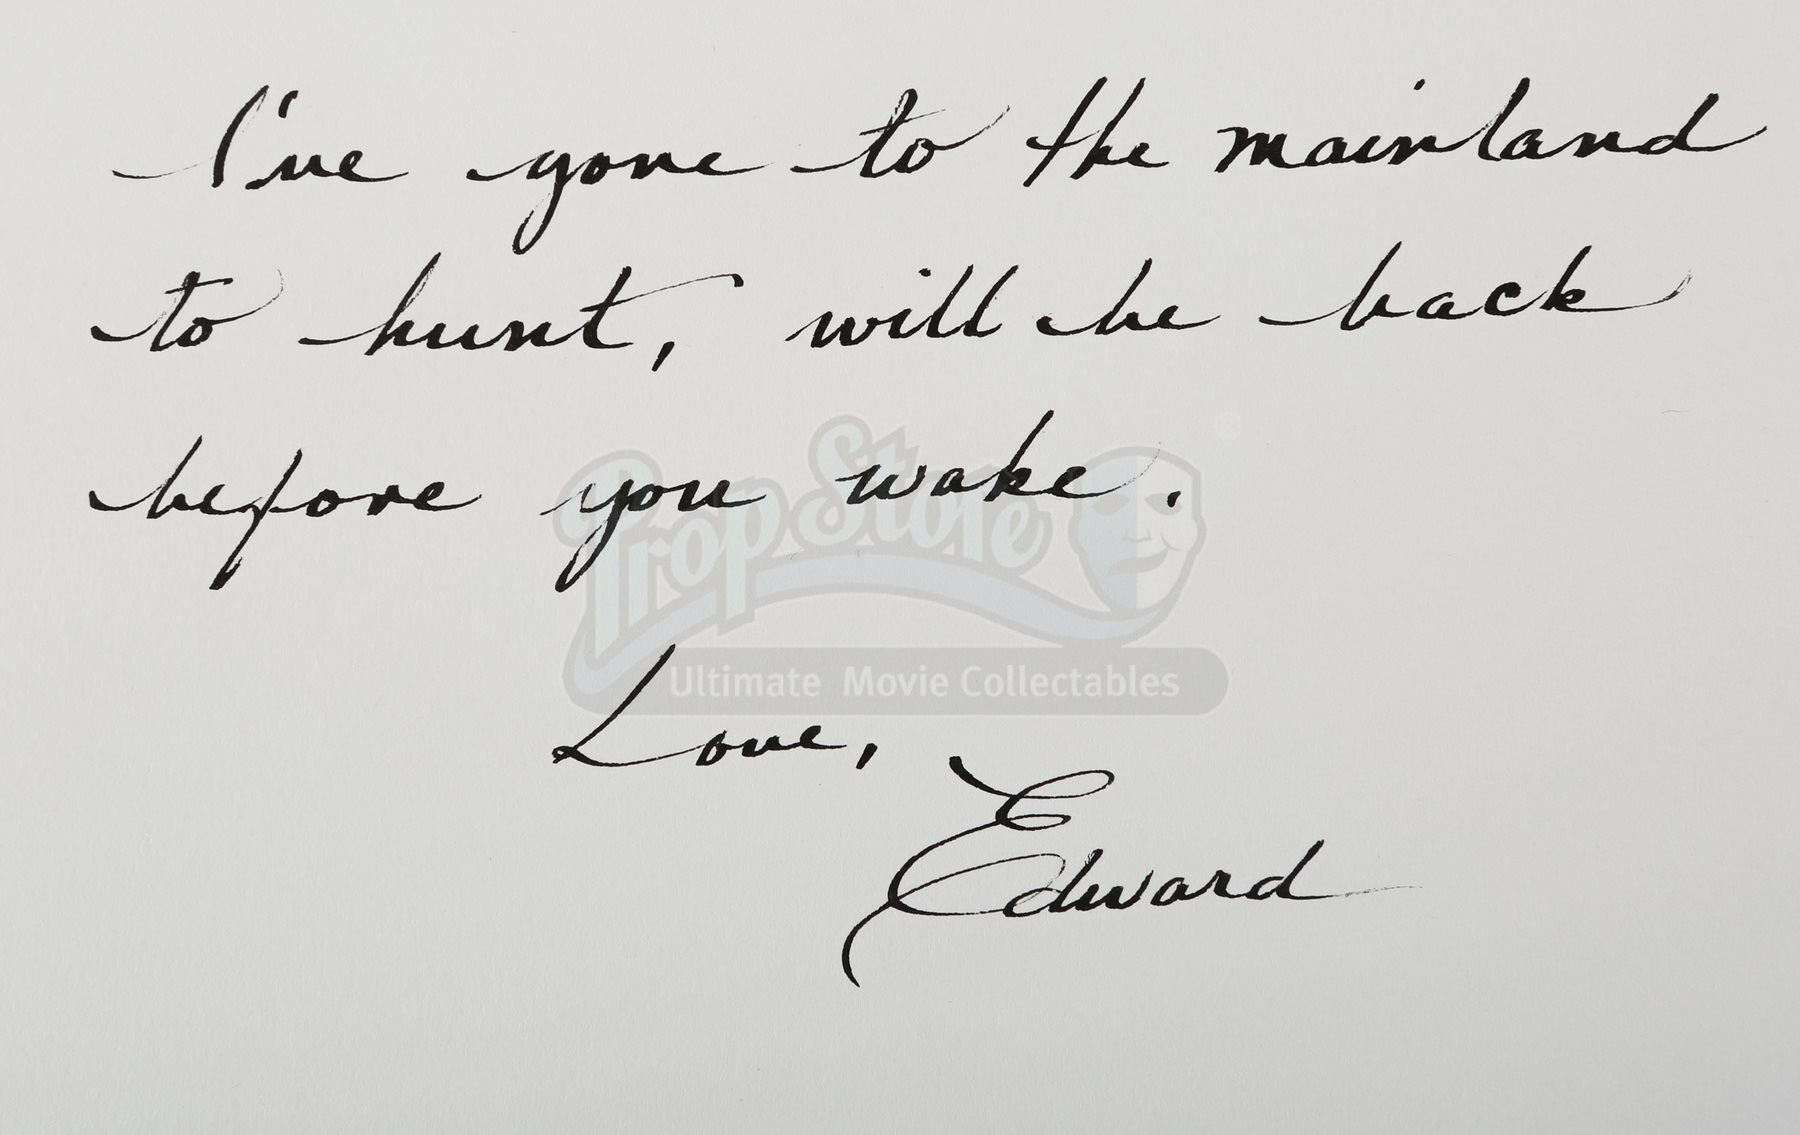 I've gone to the mainland
to hunt, will be back
before you wake.
PropStore
Ultimate Movie Collectables
Love,
Edward